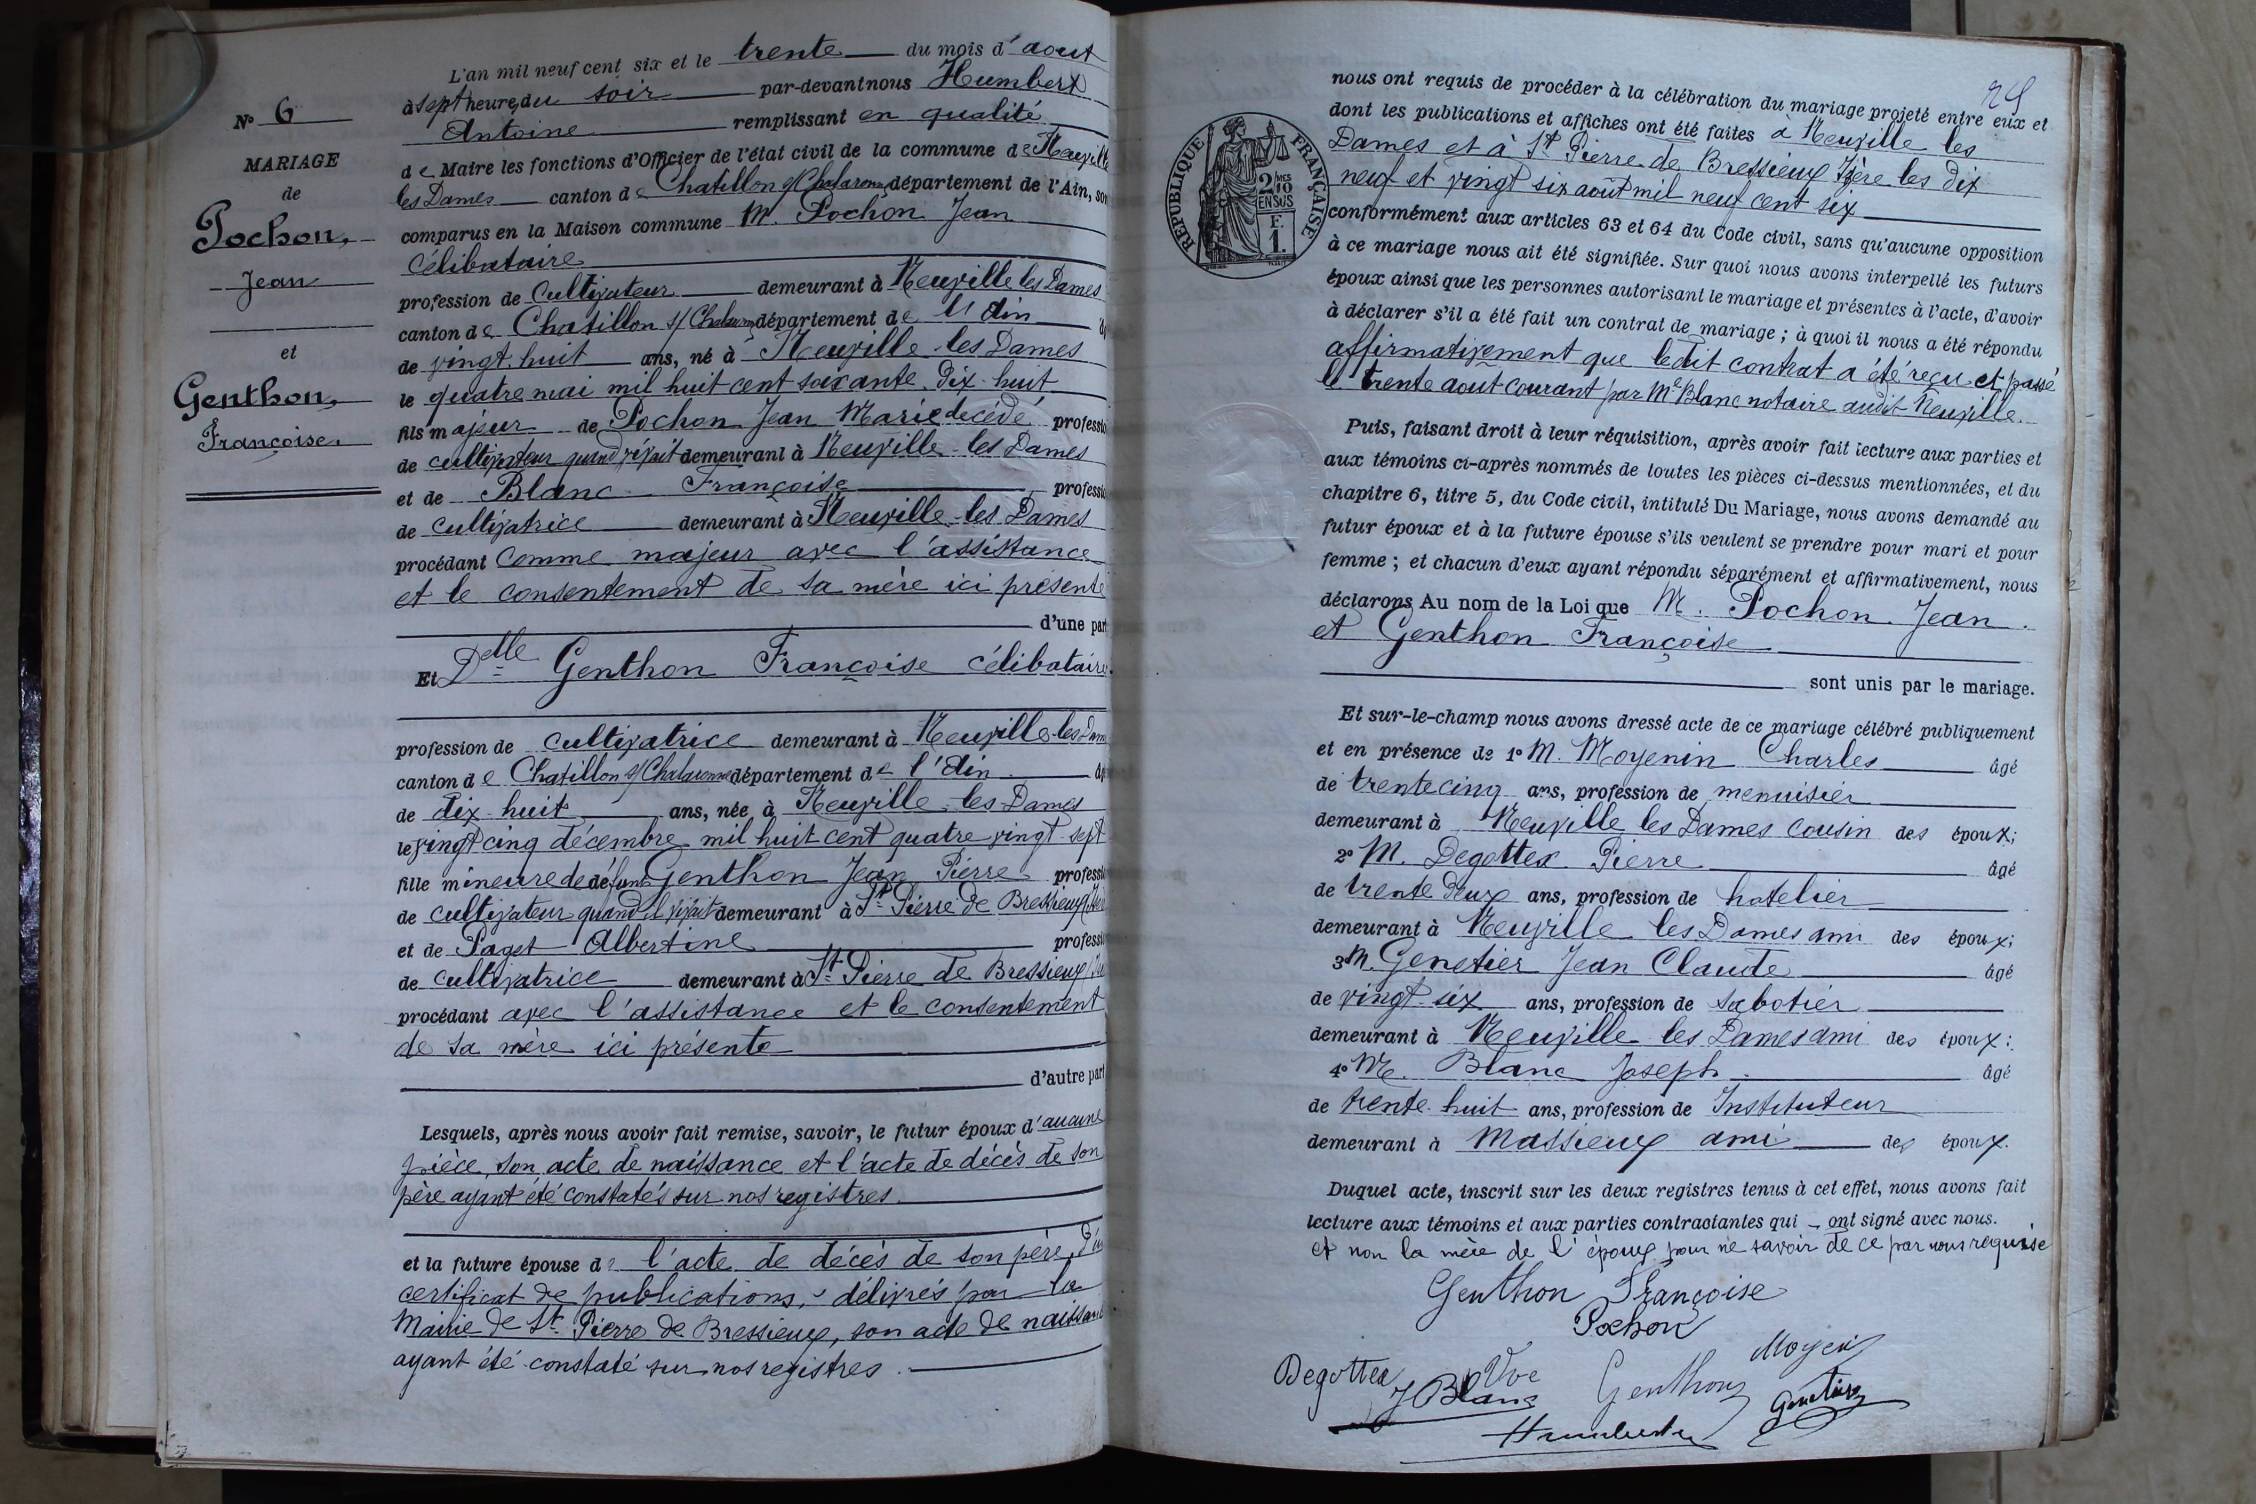 N° 6
MARIAGE
de
Pochon,
Jean
et
Genthon,
Françoise.
L'an mil neuf cent six et le trente du mois d'aout
à sept heures du soir par-devant nous Humbert
Antoine remplissant en qualité
de Maire les fonctions d'Officier de l'état civil de la commune de Neuville
les Dames canton de Chatillon s/ Chalaronne département de l'Ain, son
comparus en la Maison commune M. Pochon Jean
Célibataire
profession de Cultivateur demeurant à Neuville les Dames
canton de Chatillon s/ Chalaronne département de l'Ain
de vingt-huit ans, né à Neuville-les Dames
le quatre mai mil huit cent soixante-dix-huit
fils majeur de Pochon Jean Marie décédé, professio
de cultivateur quand vivait demeurant à Neuville-les Dames
et de Blanc Françoise professio
de cultivatrice demeurant à Neuville-les Dames
procédant comme majeur avec l'assistance
et le consentement de sa mère ici présente
d'une part
Et Delle Genthon Françoise célibataire
profession de cultivatrice demeurant à Neuville-les Dam
canton de Chatillon s/ Chalaronne département de l'Ain
de dix-huit ans, née à Neuville-les Dames
le vingt cinq décembre mil huit cent quatre vingt sept
fille mineure de défunt Genthon Jean Pierre professio
de cultivateur quand il vivait demeurant à St Pierre de Bressieux
et de Paget Albertine professio
de cultivatrice demeurant à St Pierre de Bressieux
procédant avec l'assistance et le consentement
de sa mère ici présente
d'autre part
Lesquels, après nous avoir fait remise, savoir, le futur époux d'aucune
pièce, son acte de naissance et l'acte de décès de son
père ayant été constatés sur nos registres.
et la future épouse de l'acte de décès de son père,
certificat de publications, délivrés par la
Mairie de St Pierre de Bressieux, son acte de naissance
ayant été constaté sur nos registres.
29
RÉPUBLIQUE FRANÇAISE
2/10 MES
EN SUS
F.
1.
nous ont requis de procéder à la célébration du mariage projeté entre eux et
dont les publications et affiches ont été faites à Neuville les
Dames et à St Pierre de Bressieux Isère les dix
neuf et vingt six août mil neuf cent six
conformément aux articles 63 et 64 du Code civil, sans qu'aucune opposition
à ce mariage nous ait été signifiée. Sur quoi nous avons interpellé les futurs
époux ainsi que les personnes autorisant le mariage et présentes à l'acte, d'avoir
à déclarer s'il a été fait un contrat de mariage ; à quoi il nous a été répondu
affirmativement que ledit contrat a été reçu et passé
le trente aout courant par Me Blanc notaire audit Neuville.
Puis, faisant droit à leur réquisition, après avoir fait lecture aux parties et
aux témoins ci-après nommés de toutes les pièces ci-dessus mentionnées, et du
chapitre 6, titre 5, du Code civil, intitulé Du Mariage, nous avons demandé au
futur époux et à la future épouse s'ils veulent se prendre pour mari et pour
femme ; et chacun d'eux ayant répondu séparément et affirmativement, nous
déclarons Au nom de la Loi que M. Pochon Jean
et Genthon Françoise
sont unis par le mariage.
Et sur-le-champ nous avons dressé acte de ce mariage célébré publiquement
et en présence de 1° M. Moyenin Charles âgé
de trente cinq ans, profession de menuisier
demeurant à Neuville les Dames cousin des époux;
2° M. Degottex Pierre âgé
de trente deux ans, profession de hotelier
demeurant à Neuville les Dames ami des époux;
3 M. Genetier Jean Claude âgé
de vingt-six ans, profession de sabotier
demeurant à Neuville les Dames ami des époux:
4° M. Blanc Joseph âgé
de trente-huit ans, profession de Instituteur
demeurant à Massieux ami des époux.
Duquel acte, inscrit sur les deux registres tenus à cet effet, nous avons fait
lecture aux témoins et aux parties contractantes qui ont signé avec nous.
et non la mère de l'époux pour ne savoir de ce par nous requise
Genthon Françoise
Pochon
Degottex Vve Genthon Moyenin
J Blanc Genetier
Humbert